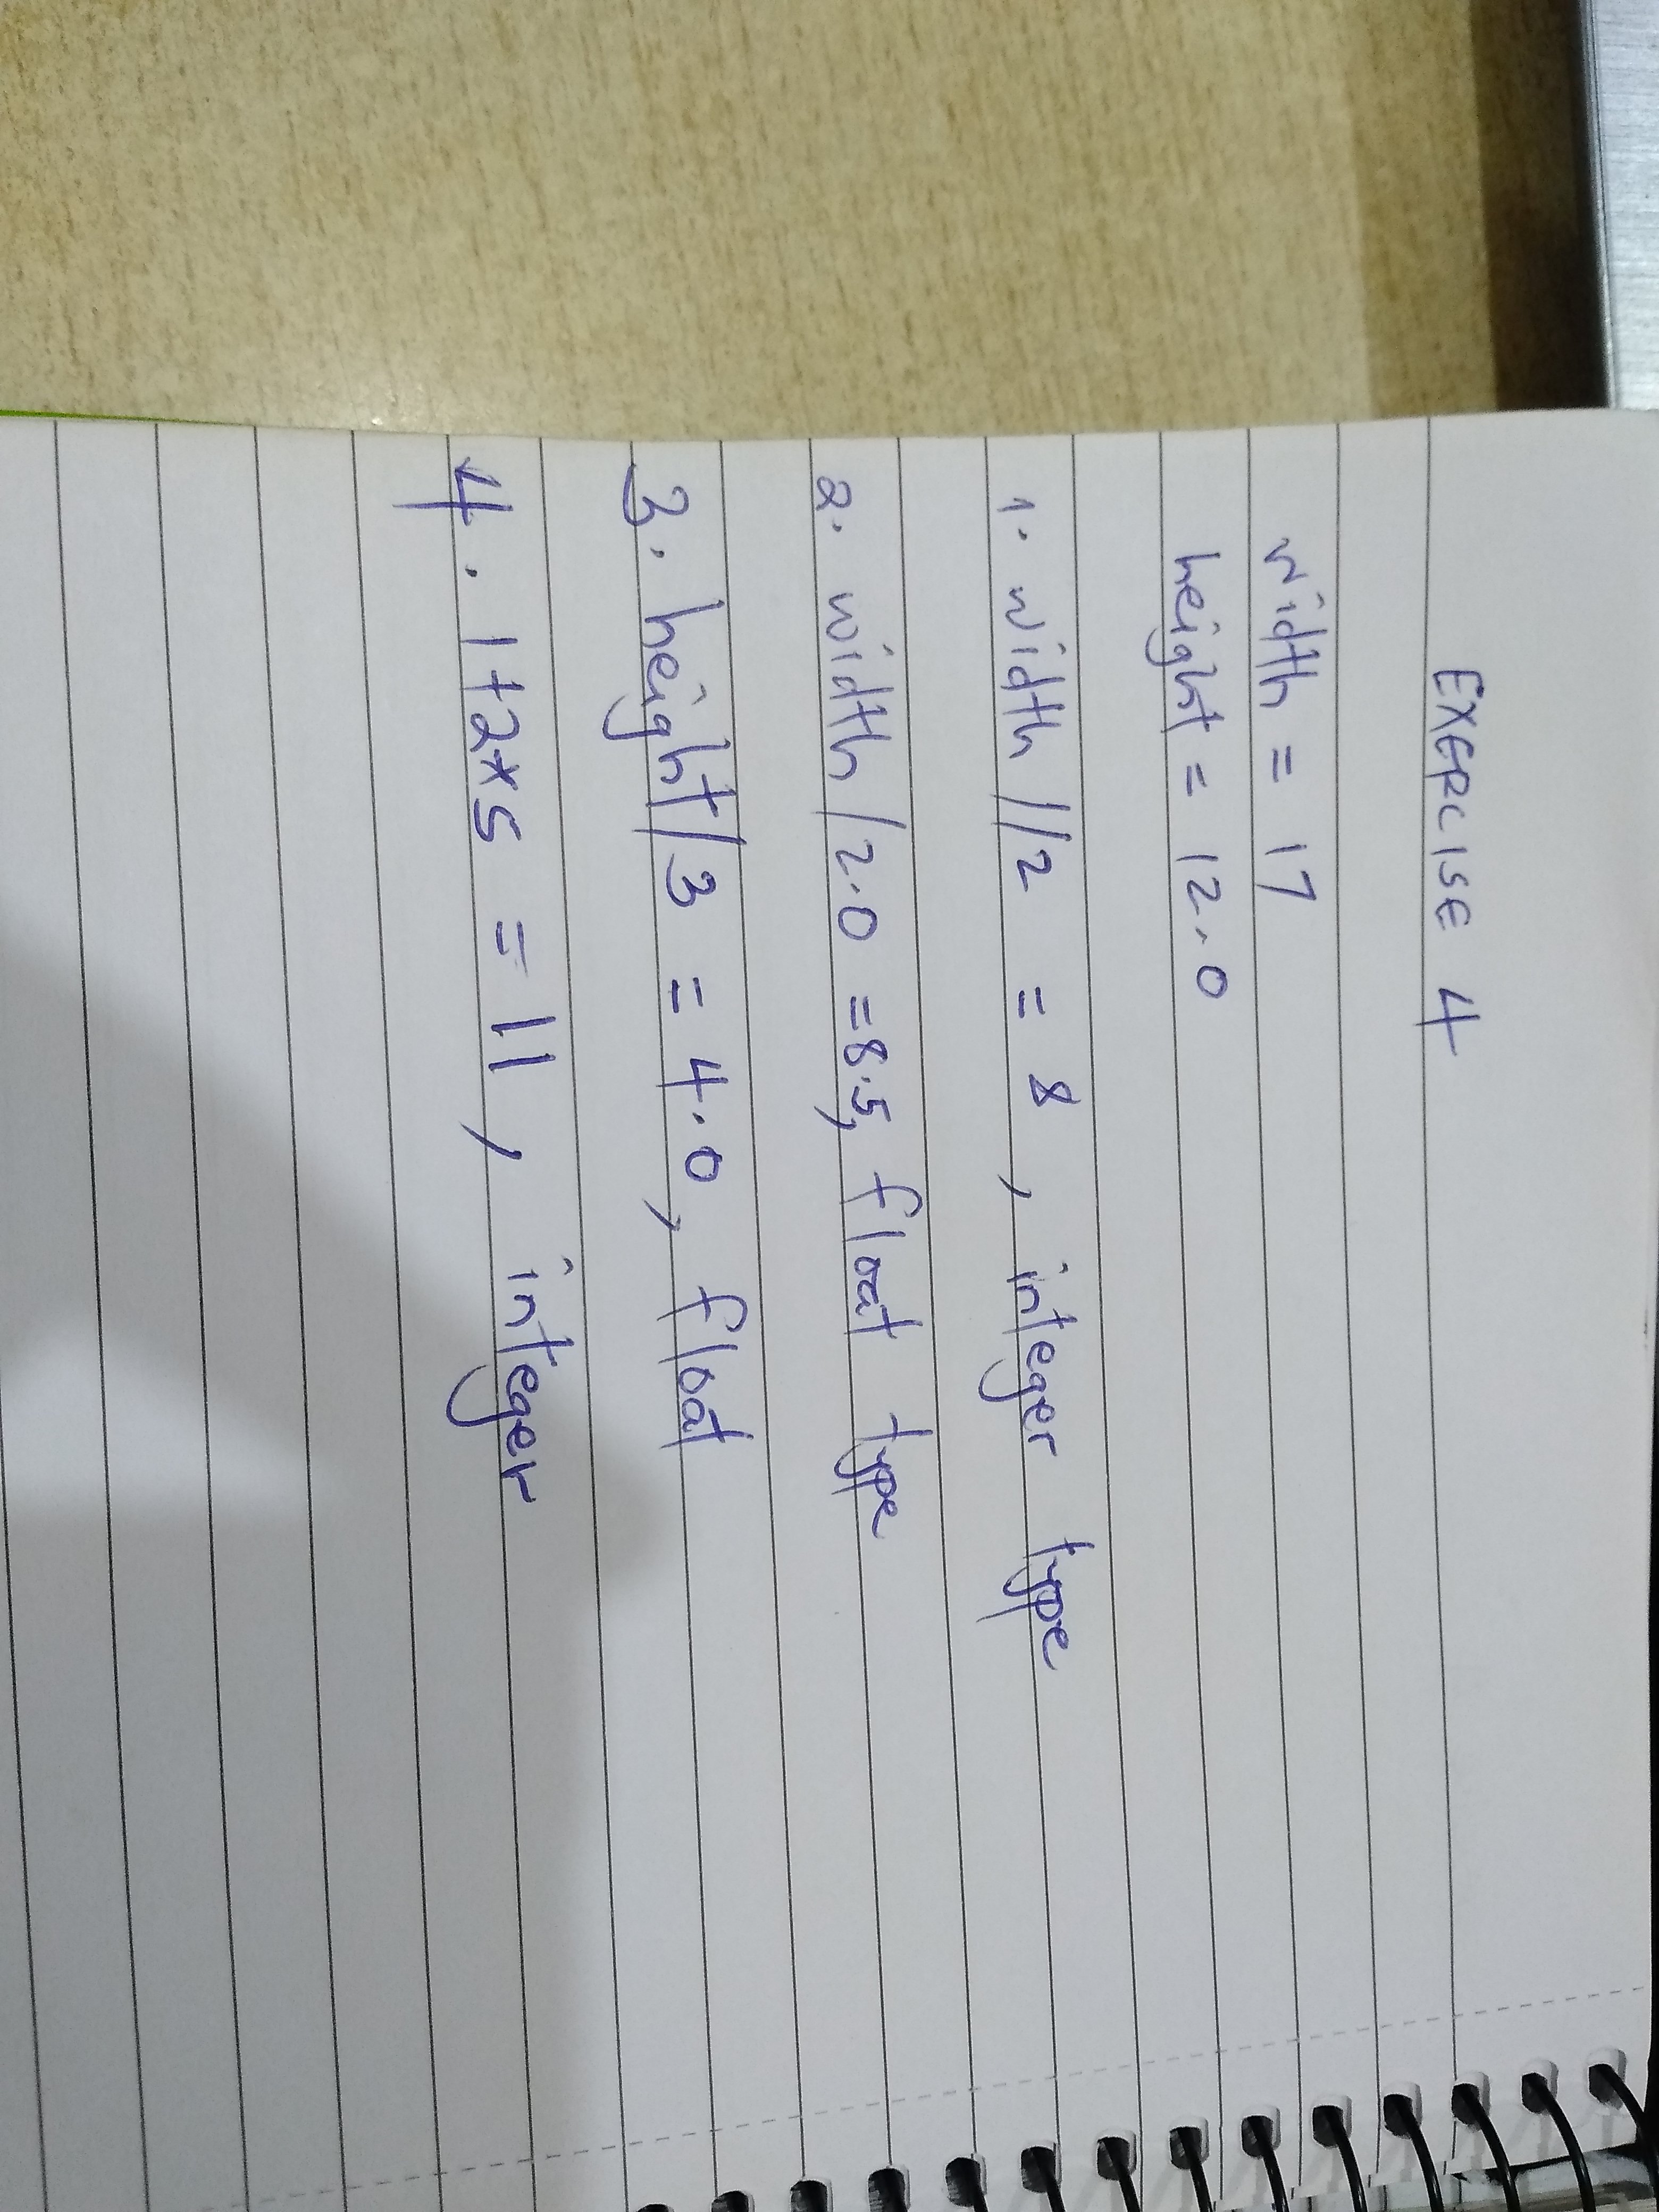 EXERCISE 4
width = 17
height = 12.0
1. width //2 = 8 , integer type
2. width /2.0 =8.5, float type
3. height/3 = 4.0, float
4. 1+2*5 = 11 , integer